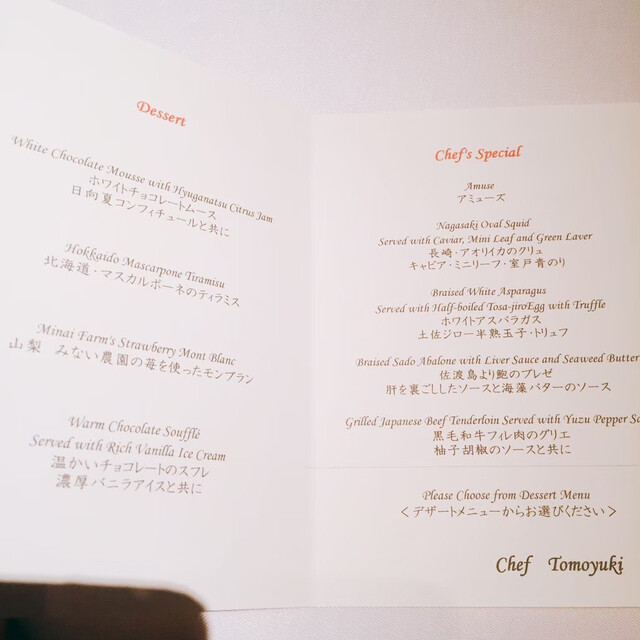 Dessert
White Chocolate Mousse with Hyuganatsu Citrus Jam
ホワイトチョコレートムース
日向夏コンフィチュールと共に
Hokkaido Mascarpone Tiramisu
北海道・マスカルポーネのティラミス
Minai Farm's Strawberry Mont Blanc
山梨　みない農園の苺を使ったモンブラン
Warm Chocolate Soufflé
Served with Rich Vanilla Ice Cream
温かいチョコレートのスフレ
濃厚バニラアイスと共に
Chef's Special
Amuse
アミューズ
Nagasaki Oval Squid
Served with Caviar, Mini Leaf and Green Laver
長崎・アオリイカのクリュ
キャビア・ミニリーフ・室戸青のり
Braised White Asparagus
Served with Half-boiled Tosa-jiro Egg with Truffle
ホワイトアスパラガス
土佐ジロー半熟玉子・トリュフ
Braised Sado Abalone with Liver Sauce and Seaweed Butter
佐渡島より鮑のブレゼ
肝を裏ごししたソースと海藻バターのソース
Grilled Japanese Beef Tenderloin Served with Yuzu Pepper
黒毛和牛フィレ肉のグリエ
柚子胡椒のソースと共に
Please Choose from Dessert Menu
＜デザートメニューからお選びください＞
Chef Tomoyuki